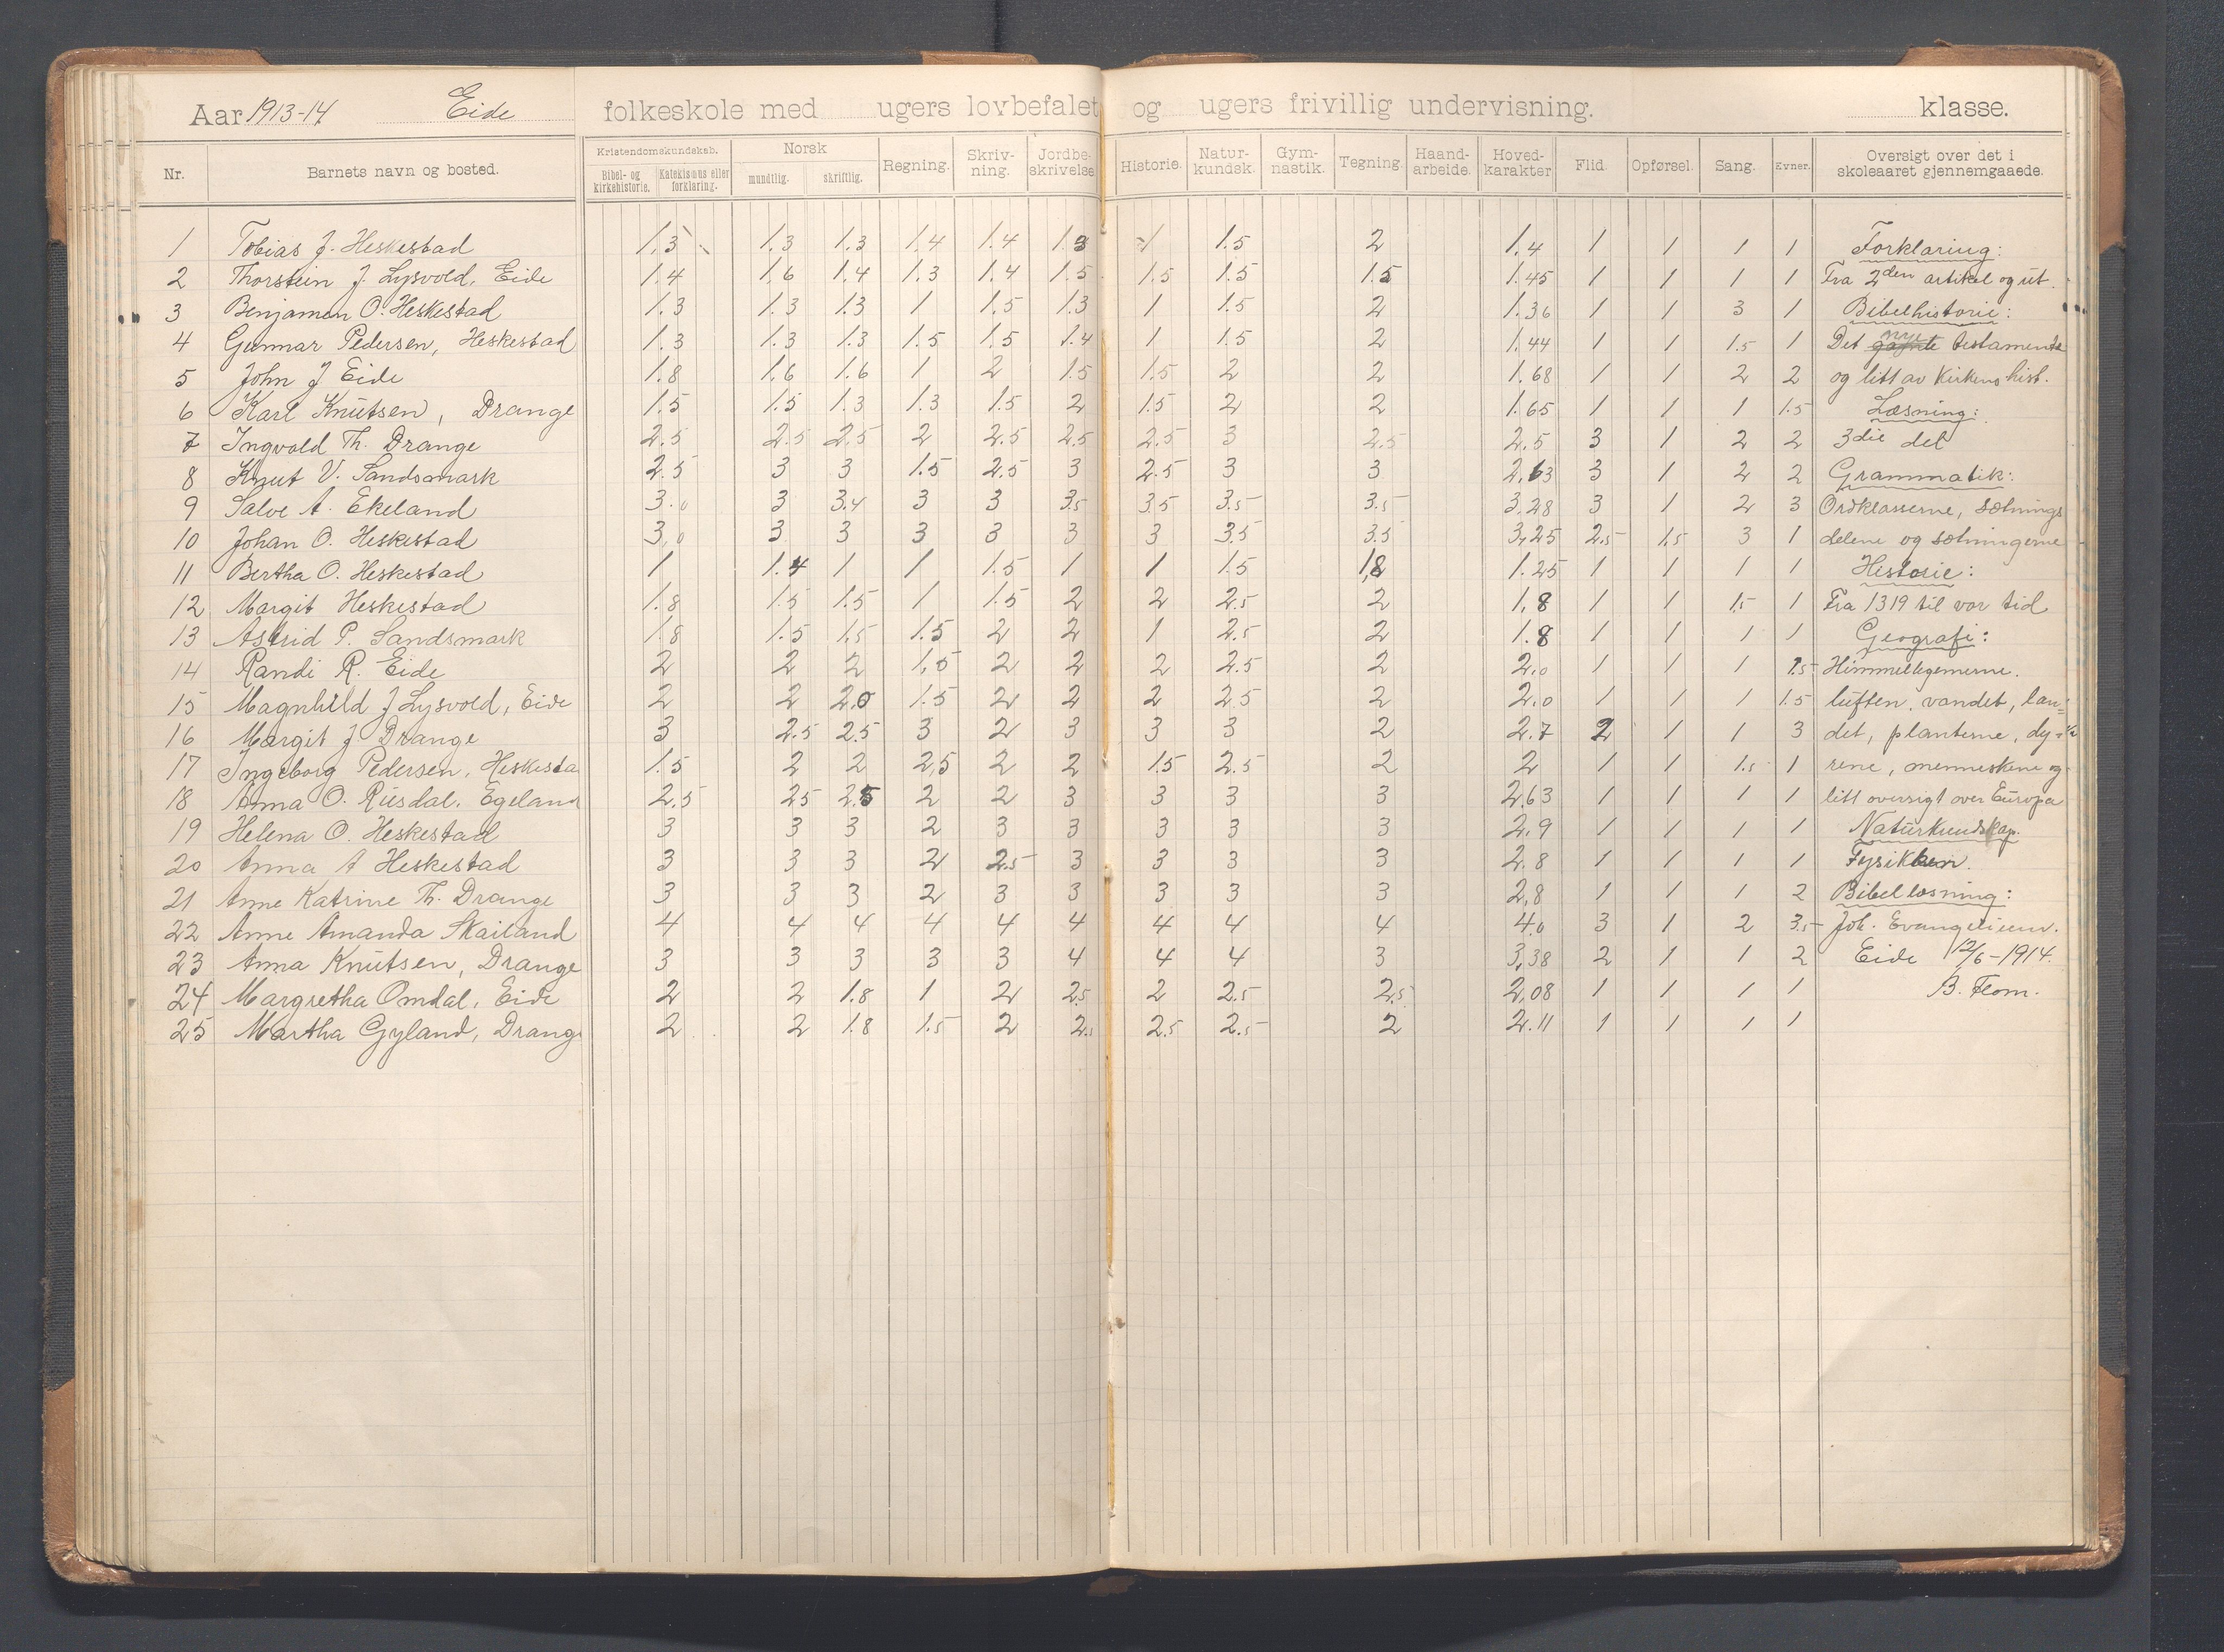 Aar 1913-14 Eide folkeskole med ugers lovbefalet og ugers frivillig undervisning. klasse.
Nr. Barnets navn og bosted. Kristendomskundskab. Bibel- og kirkehistorie. Katekismus eller forklaring. Norsk mundtlig. skriftlig. Regning. Skriv-ning. Jordbe-skrivelse Historie. Natur-kundsk. Gym-nastik. Tegning. Haand-arbeide. Hoved-karakter Flid. Opførsel. Sang. Evner. Oversigt over det i skoleaaret gjennemgaaede.
1 Tobias J. Heskestad 1.3 1.3 1.3 1.4 1.4 1.3 1 1.5 2 1.4 1 1 1 1 Forklaring:
2 Thorstein J. Lysvold, Eide 1.4 1,6 1.4 1.3 1.4 1.5 1.5 1.5 1.5 1.45 1 1 1 1 Fra 2den artikel og ut.
3 Benjamen O. Heskestad 1.3 1.3 1.3 1 1.5 1.3 1 1.5 2 1.36 1 1 3 1 Bibelhistorie:
4 Gunnar Pedersen, Heskestad 1.3 1.3 1.3 1.5 1.5 1.4 1 1.5 2 1.44 1 1 1.5 1 Det nye testamente
5 John J Eide 1.8 1.6 1.6 1 2 1.5 1.5 2 2 1.68 1 1 2 2 og litt av kirkens hist.
6 Karl Knutsen, Drange 1.5 1.5 1.3 1.3 1.5 2 1.5 2 2 1.65 1 1 1 1.5 Læsning:
7 Ingvald Th. Drange 2.5 2.5 2.5 2 2.5 2.5 2.5 3 2.5 2.5 3 1 2 2 3die del
8 Knut V. Sandsmark 2.5 3 3 1.5 2.5 3 2.5 3 3 2.63 3 1 2 2 Grammatik:
9 Salve A. Ekeland 3.0 3 3.4 3 3 3.5 3.5 3.5 3.5 3.28 3 1 2 3 Ordklasserne, sætnings
10 Johan O. Heskestad 3,0 3 3 3 3 3 3 3.5 3.5 3,25 2.5 1.5 3 1 delene og sætningerne
11 Bertha O. Heskestad 1 1.4 1 1 1.5 1 1 1.5 1,8 1.25 1 1 1 1 Historie:
12 Margit Heskestad 1.8 1.5 1.5 1 1.5 2 2 2.5 2 1,8 1 1 1.5 1 Fra 1319 til vor tid
13 Astrid P. Sandsmark 1.8 1.5 1.5 1.5 2 2 1 2.5 2 1.8 1 1 1 1 Geografi:
14 Randi R. Eide 2 2 2 1,5 2 2 2 2.5 2 2.0 1 1 1 1.5 Himmellegemerne.
15 Magnhild J Lysvold, Eide 2 2 2.0 1.5 2 2 2 2.5 2 2.0 1 1 1 1.5 luften, vandet, lan-
16 Margit J Drange 3 2.5 2.5 3 2 3 3 3 2 2.7 2 1 1 3 det, planterne, dy-
17 Ingeborg Pedersen, Heskesta 1.5 2 2 2,5 2 2 1.5 2.5 2 2 1 1 1.5 1 rene, menneskene og
18 Anna O. Rusdal, Egeland 2,5 2.5 2.5 2 2 3 3 3 3 2.63 1 1 1 1 litt oversigt over Europa
19 Helena O. Heskestad 3 3 3 2 3 3 3 3 3 2,9 1 1 1 1 Naturkundskap.
20 Anna A Heskestad 3 3 3 2 2.5 3 3 3 3 2.8 1 1 1 1 Fysikken.
21 Anne Katrine Th. Drange 3 3 3 2 3 3 3 3 3 2,8 1 1 1 2 Bibellæsning:
22 Anne Amanda Skailand 4 4 4 4 4 4 4 4 4 4.0 3 1 2 3.5 Joh. Evangelium.
23 Anna Knutsen, Drange 3 3 3 3 3 4 4 4 3 3,38 2 1 1 2 Eide 12/6-1914.
24 Margretha Omdal, Eide 2 2 1.8 1 2 2.5 2 2.5 2.5 2,08 1 1 1 1 B. Flom.
25 Martha Gyland, Drang 2 2 1.8 1.5 2 2.5 2.5 2.5 2 2.11 1 1 1 1